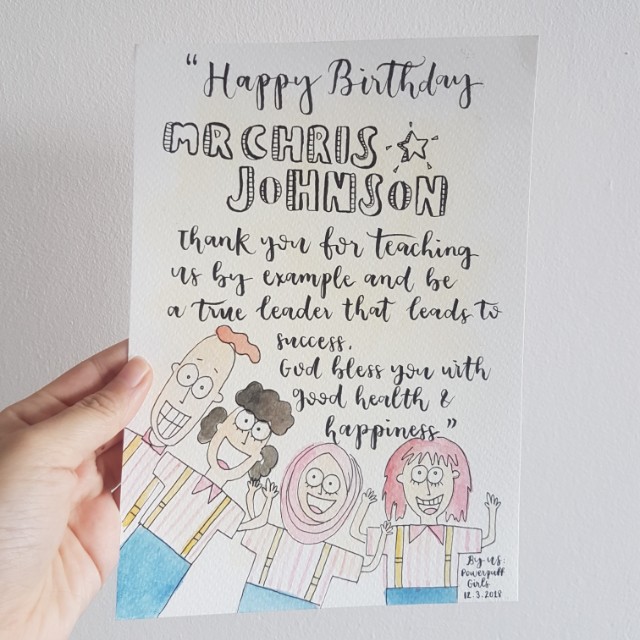 "Happy Birthday
MR CHRIS
JOHNSON
Thank you for teaching
us by example and be
a true leader that leads to
success.
God bless you with
good health &
happiness"
By us:
Powerpuff
Girls
12.3.2018